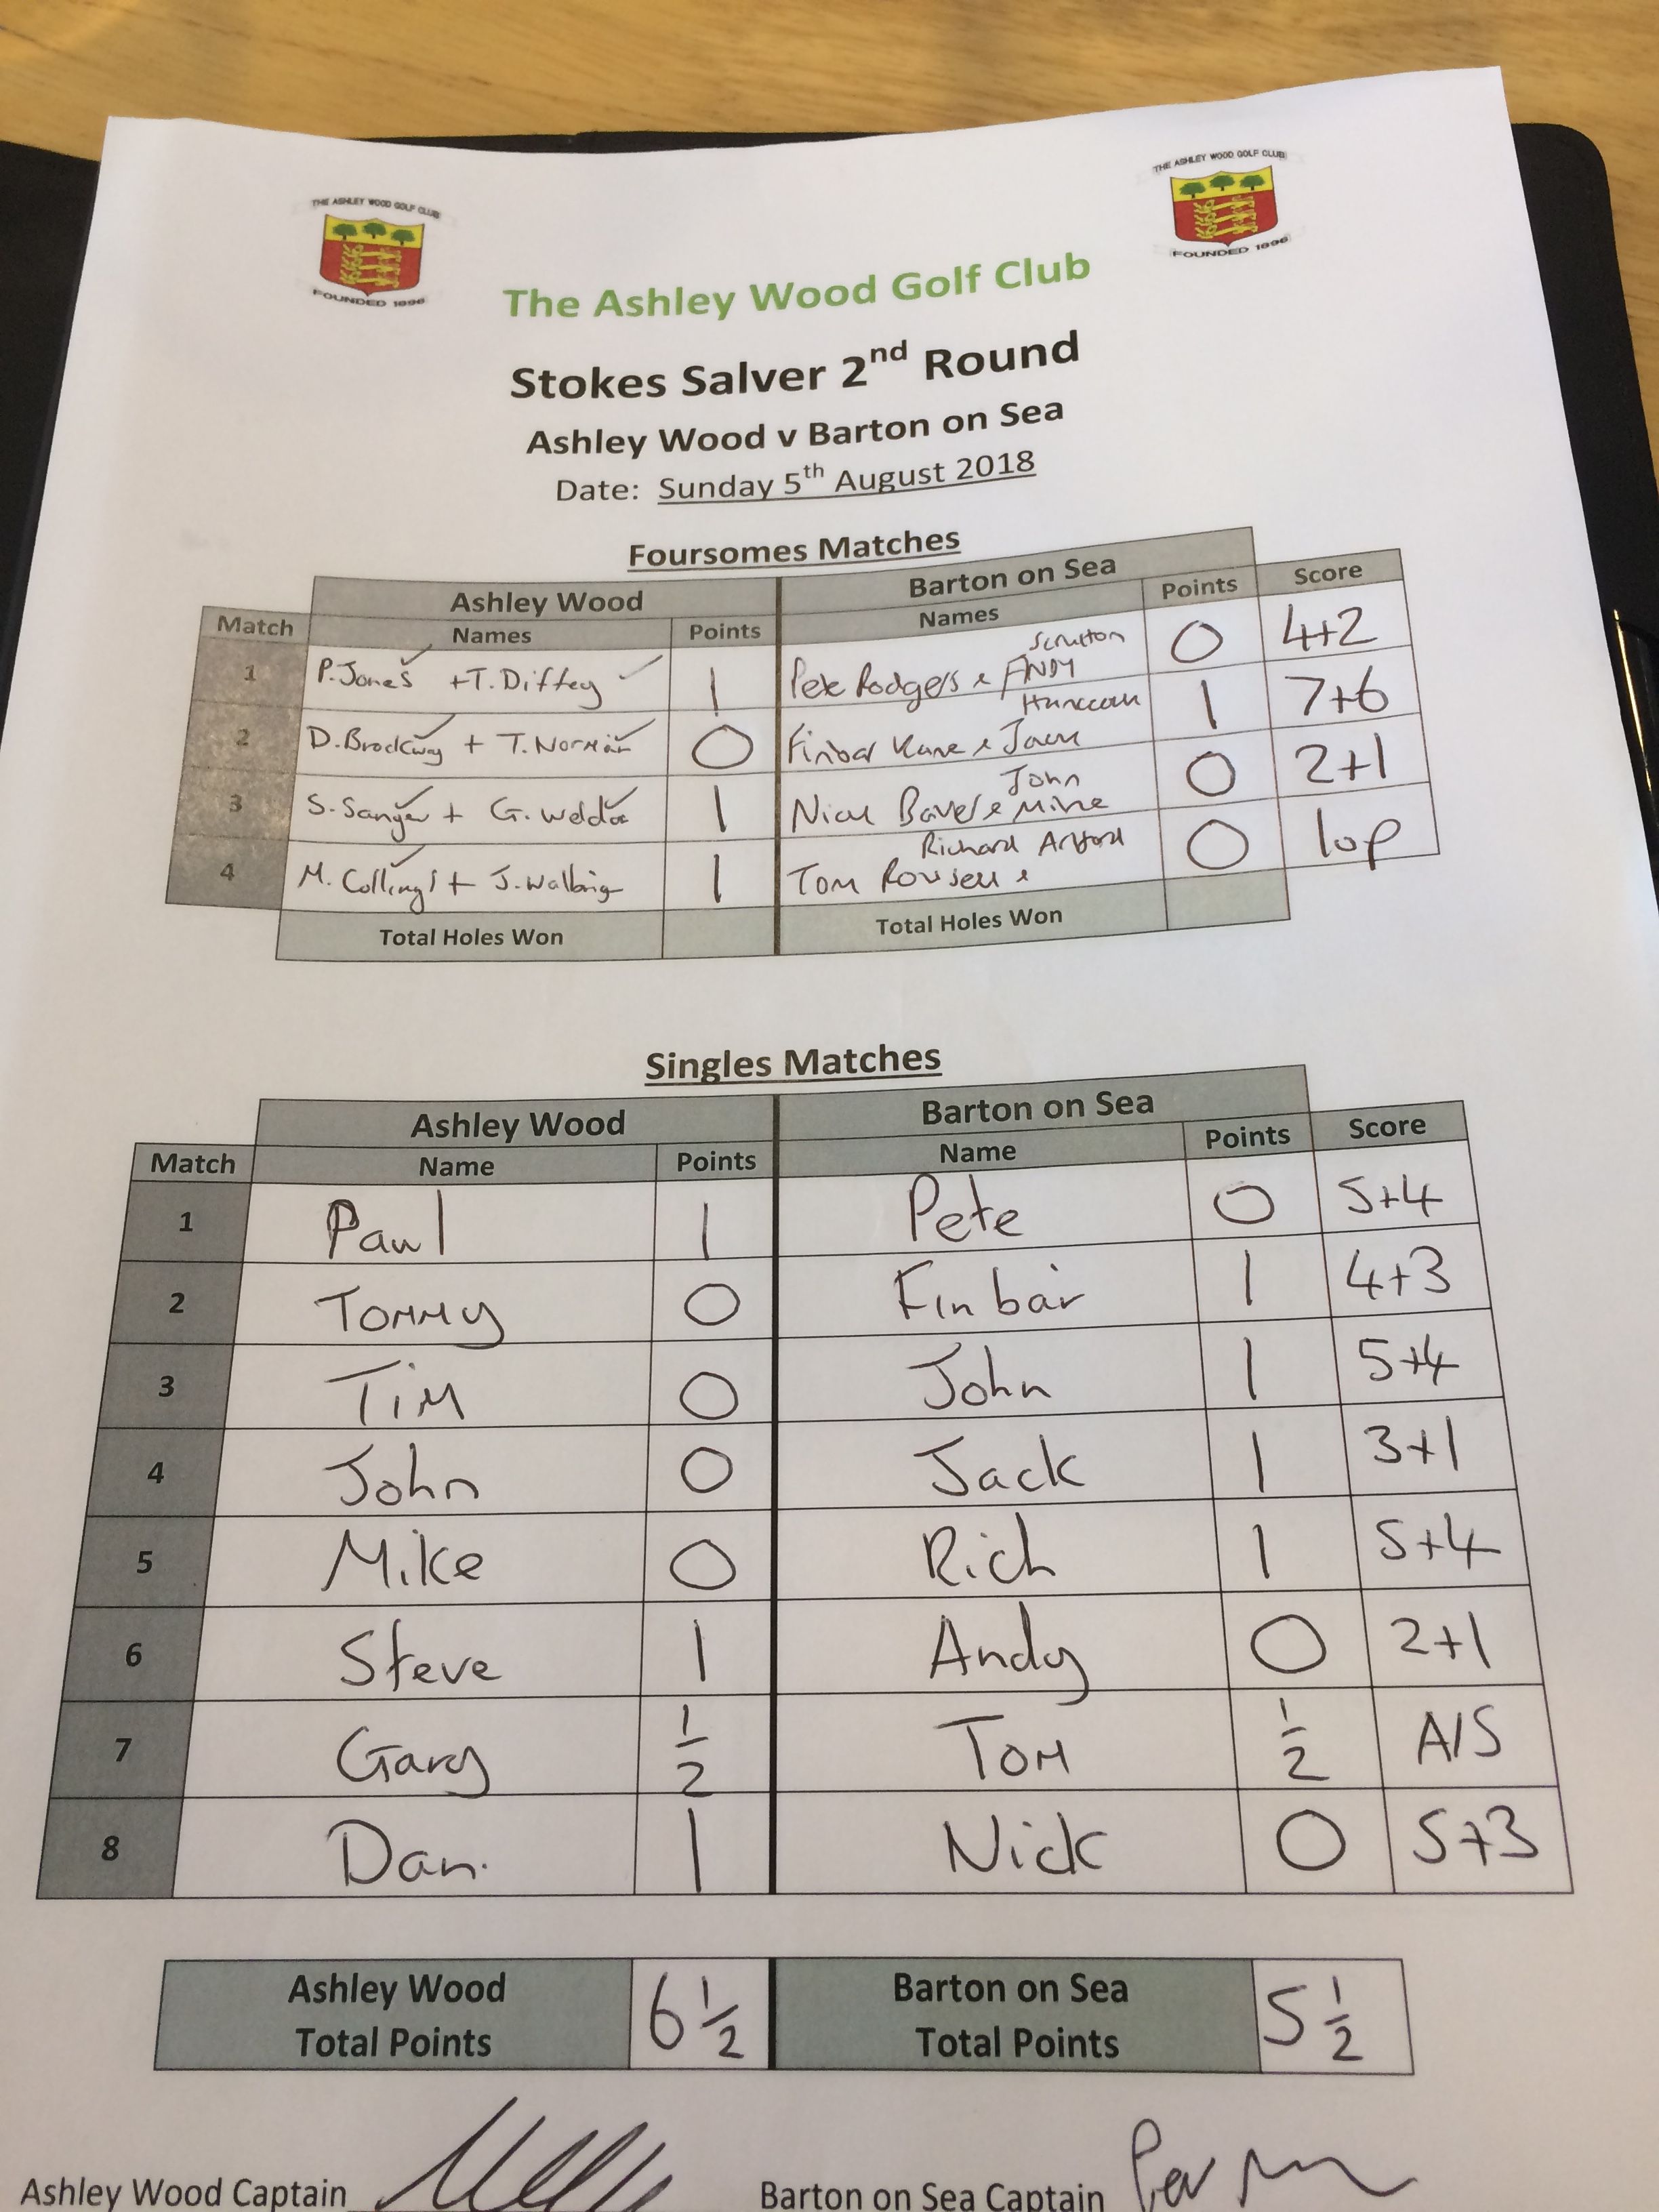 THE ASHLEY WOOD GOLF CLUB
FOUNDED 1896
THE ASHLEY WOOD GOLF CLUB
FOUNDED 1896
The Ashley Wood Golf Club
Stokes Salver 2nd Round
Ashley Wood v Barton on Sea
Date: Sunday 5th August 2018
Foursomes Matches
Ashley Wood Barton on Sea
Match Names Points Names Points Score
1 P. Jones + T. Diffey 1 Pete Rodgers & Andy Scrutton 0 4+2
2 D. Brockway + T. Norman 0 Finbar Kane & Jack 1 7+6
3 S. Sanger + G. Weldon 1 Nick & Mike John 0 2+1
4 M. Collings + J. 1 Tom & Richard 0 1up
Total Holes Won Total Holes Won
Singles Matches
Ashley Wood Barton on Sea
Match Name Points Name Points Score
1 Paul 1 Pete 0 5+4
2 Tommy 0 Finbar 1 4+3
3 Tim 0 John 1 5+4
4 John 0 Jack 1 3+1
5 Mike 0 Rich 1 5+4
6 Steve 1 Andy 0 2+1
7 Gary ½ Tom ½ A/S
8 Dan. 1 Nick 0 5+3
Ashley Wood Total Points 6½ Barton on Sea Total Points 5½
Ashley Wood Captain Barton on Sea Captain